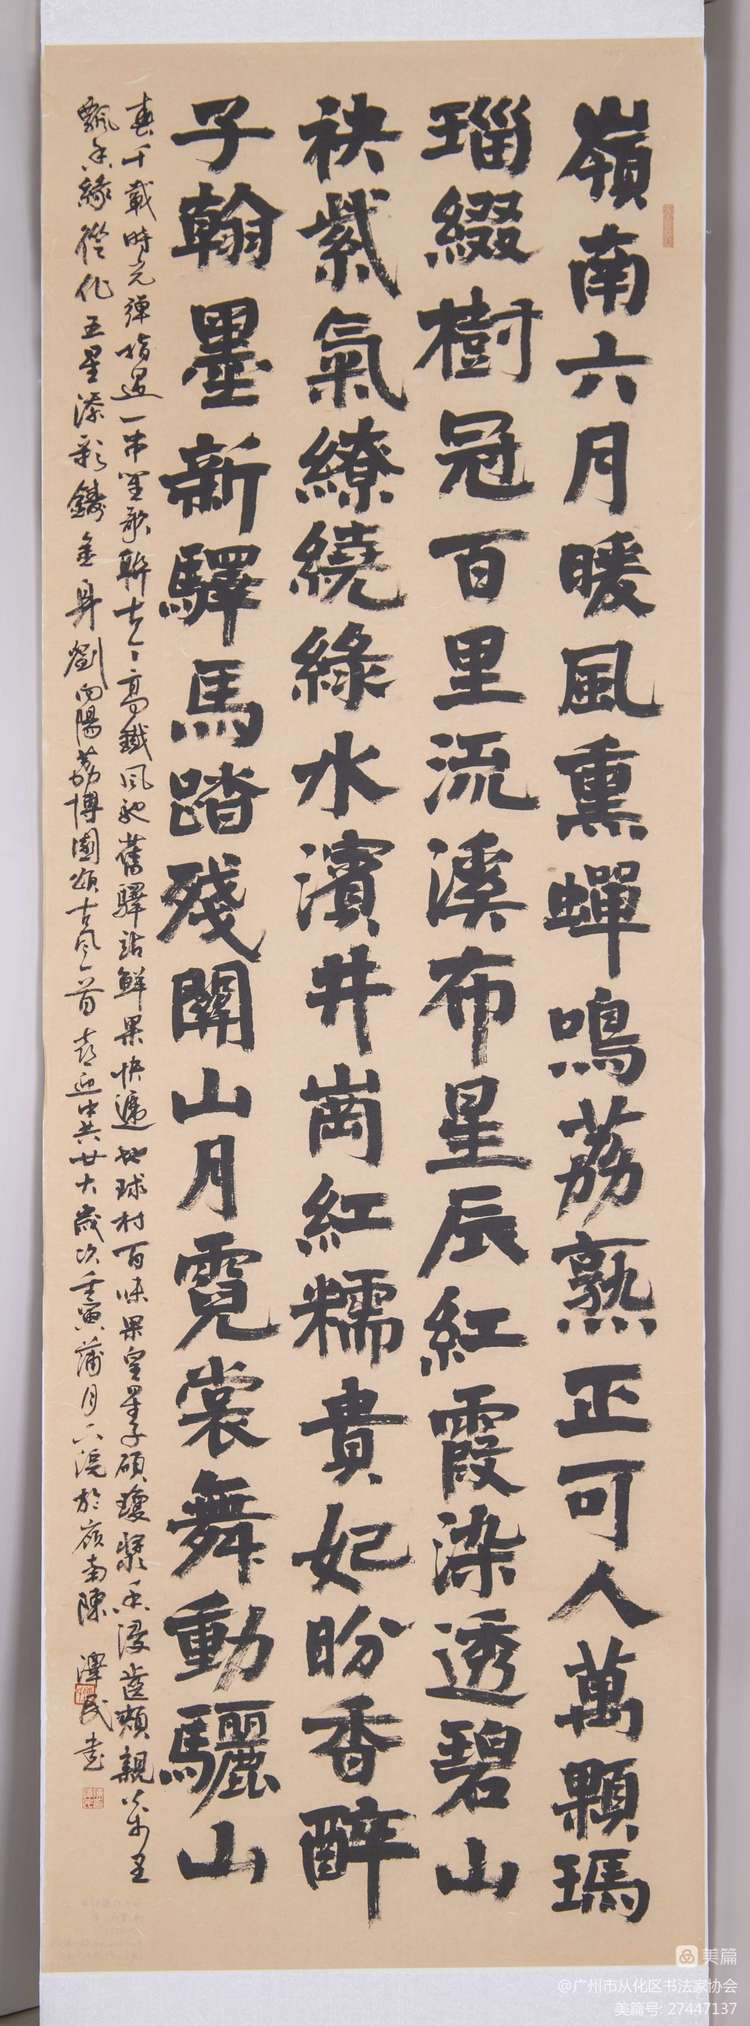 嶺南六月暖風熏蟬鳴荔熟正可人萬顆瑪
瑙綴樹冠百里流溪布星辰紅霞染透碧山
袂紫氣繚繞綠水濱井崗紅糯貴妃盼香醉
子翰墨新驛馬踏殘關山月霓裳舞動驪山
春千載時光彈指過一部聖歌斬古今高鐵風馳舊驛站鮮果快遞地球村百味果皇星子碩瓊漿玉浸齒頰親
飄香緣從化五星添彩鑄金身劉向陽荔博園頌古風一首喜迎中共廿大歲次壬寅蒲月下浣於嶺南陳澤民書
美篇
@广州市从化区书法家协会
美篇号: 27447137